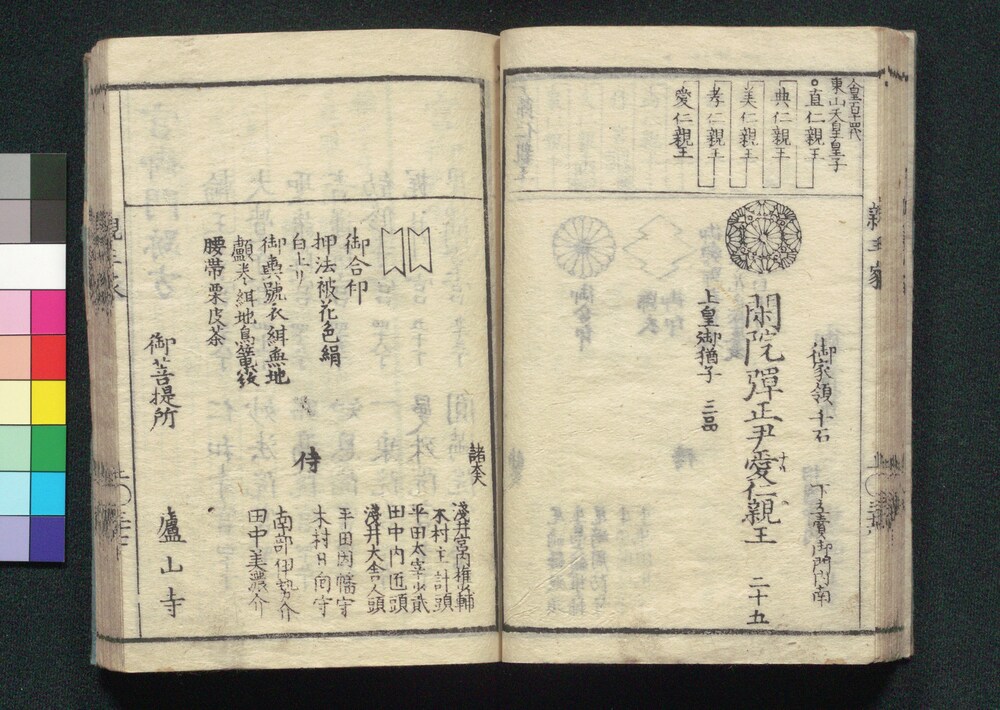 親王家
人皇百十四代
東山天皇皇子
直仁親王
典仁親王
美仁親王
孝仁親王
愛仁親王
御家領千石
下立賣御門内南
閑院彈正尹愛仁親王 二十五
上皇御猶子 三品
御合印
押法被花色絹
白上り
御輿舁衣緋無地
腰帯栗皮茶
諸大夫
淺井宮内権少輔
木村主計頭
平田太宰少貳
田中内匠頭
淺井大舎人頭
侍
平田因幡守
木村日向守
南部伊勢介
田中美濃介
御菩提所
廬山寺
親王家